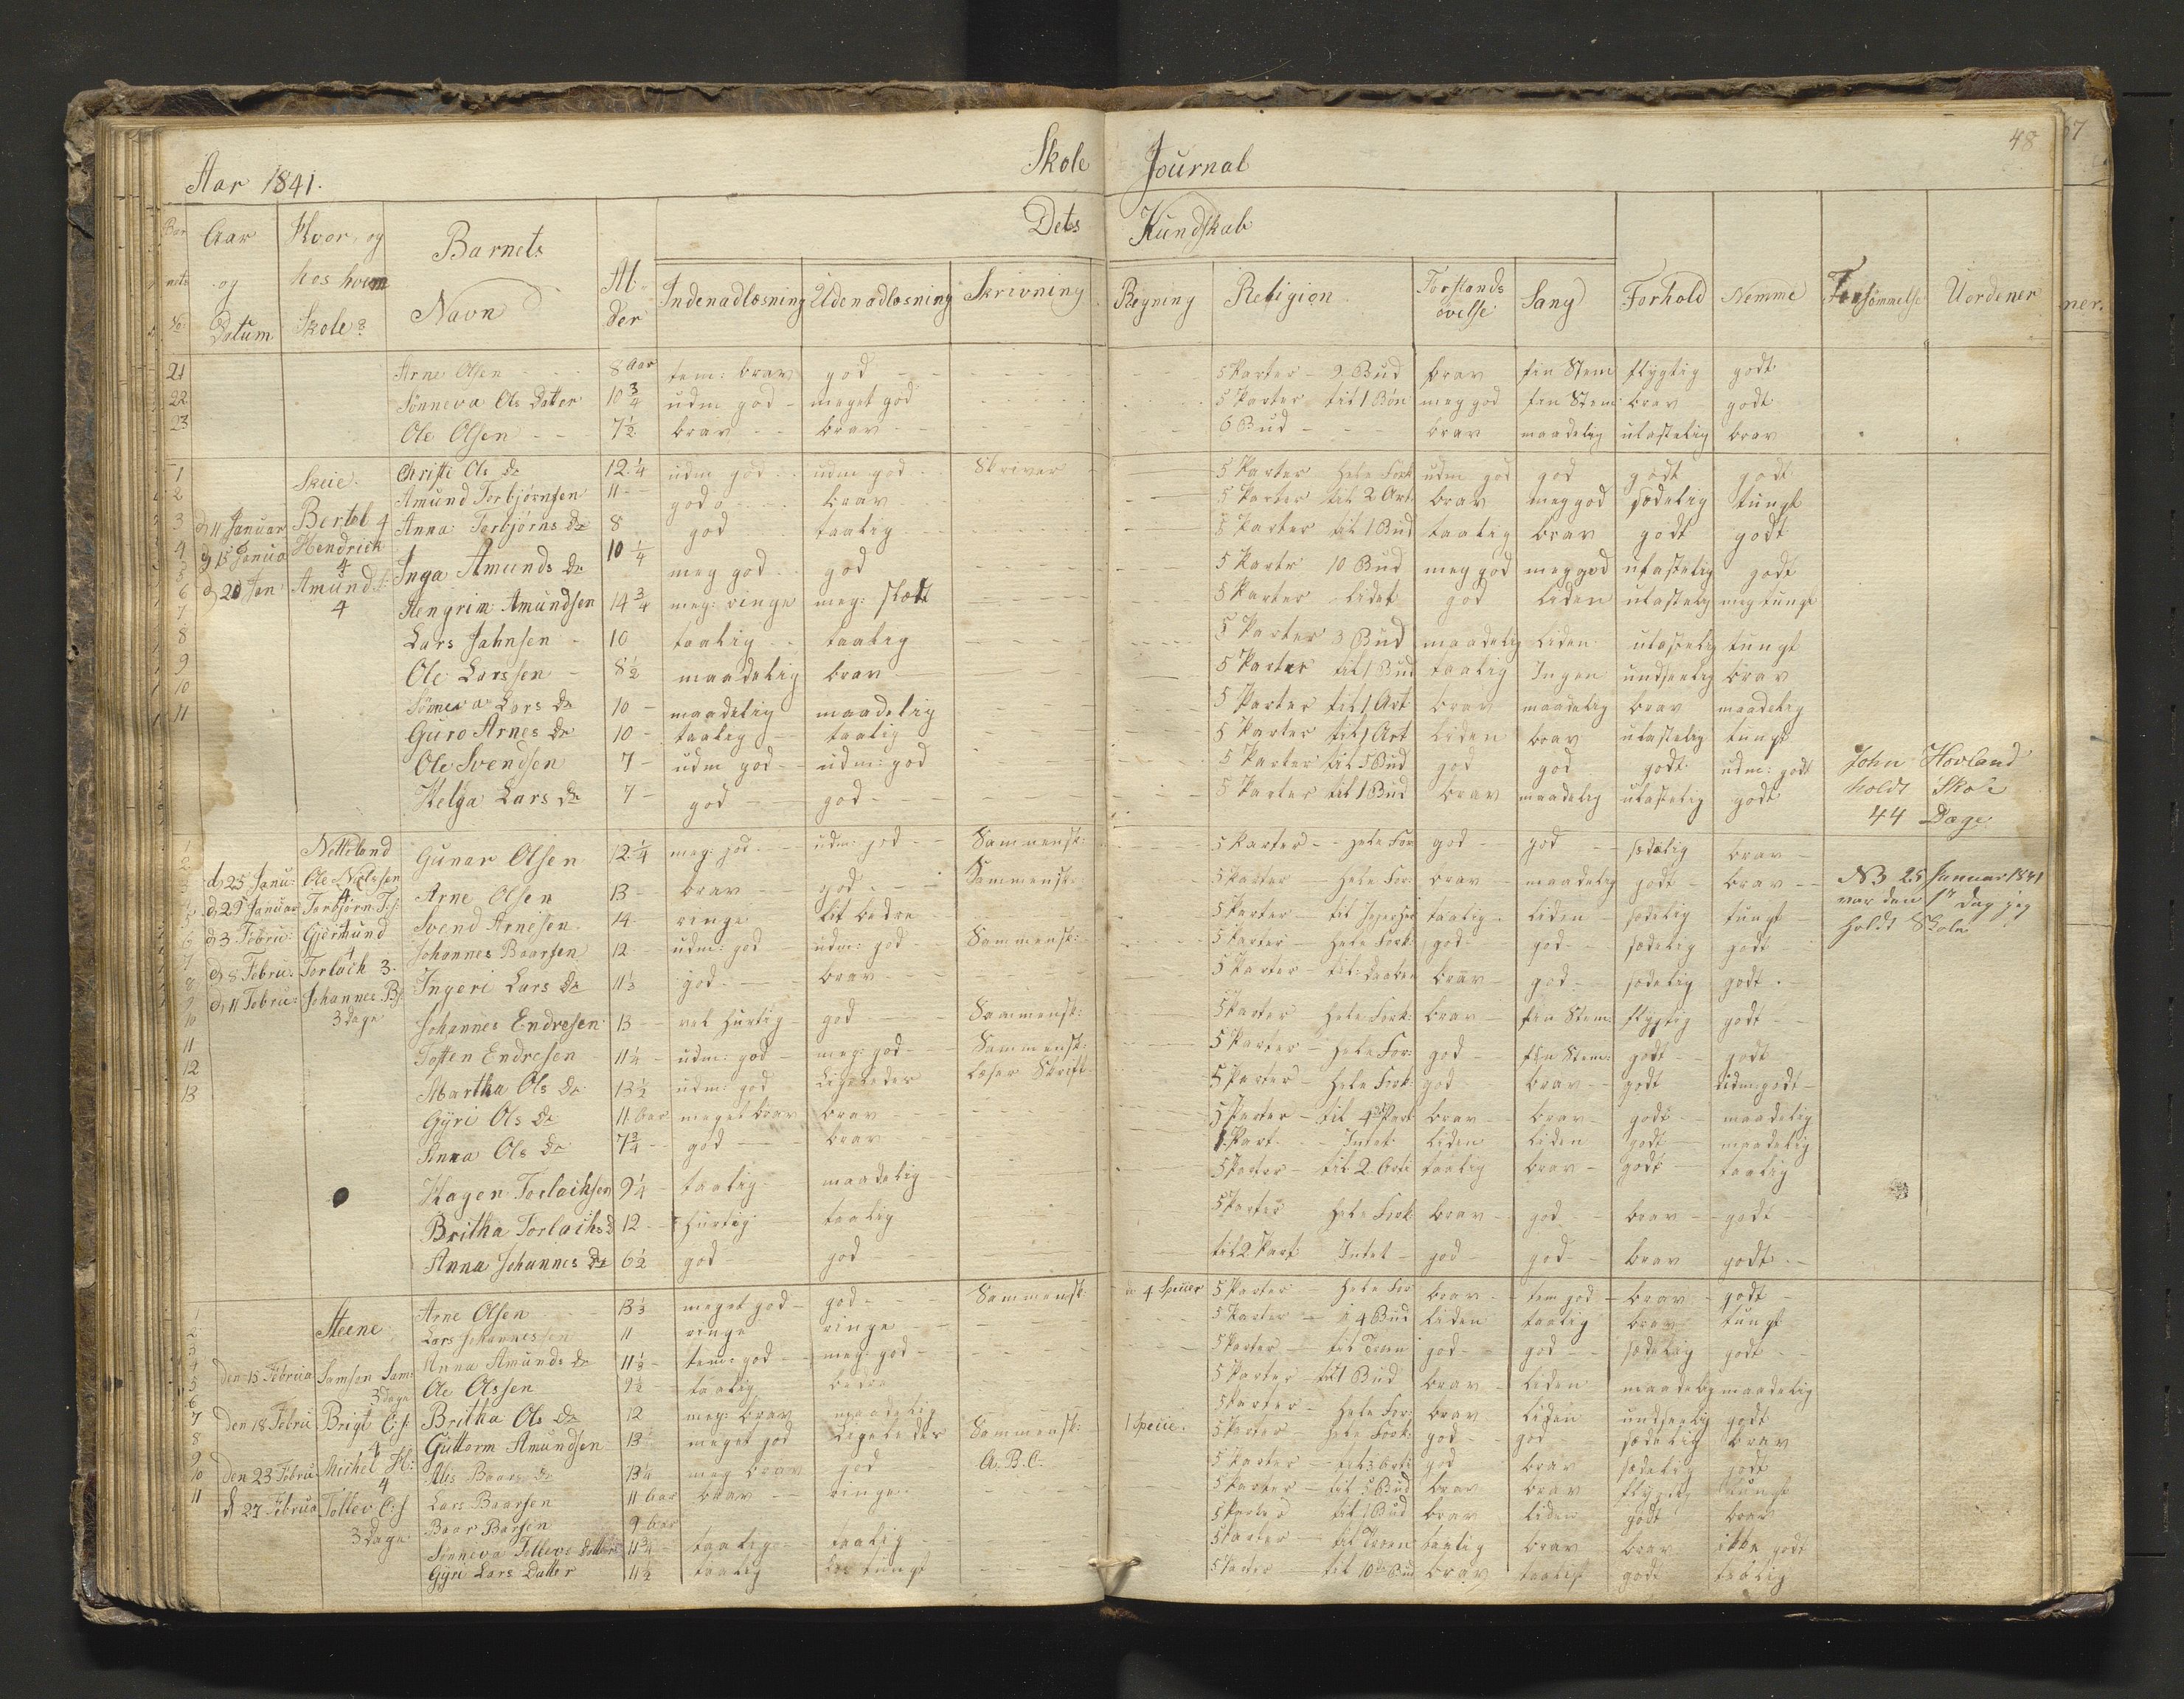 48
67
Skole Journal
Aar 1841.
Dets Kundskab
Bar nets No: Aar og Datum Hvor, og hos hvem Skole? Barnets Navn Al der Indenadlæsning Udenadlæsning Skrivning Regning Religion Forstands øvelse Sang Forhold Nemme Forsømmelse Uordener
ner.
21 Arne Olsen 8 Aar tem: brav god 5 Parter - 9 Bud brav fin Stem flygtig godt
22 Sønneva Ols Datter 10 3/4 udm god meget god 5 Parter til 1 Bøn meg god fin Stem brav godt
23 Ole Olsen 7 1/2 brav brav 6 Bud brav maadelig ulastelig brav
1 Skeie Christi Ols Dr 12 1/4 udm god udm god Skriver 5 Parter Hele Fork udm god god godt godt
2 Amund Torbjørnsen 11 god brav 5 Parter til 2 Art. brav meg god sædelig tungt
3 d 11 Januar Bertel 4 Anna Torbjørns Dr 8 god taalig 5 Parter til 1 Bud taalig brav godt godt
4 d 15 Janua Hendrich 4 Inga Amunds Dr 10 1/4 meg god god 5 Parter 10 Bud meg god meg god ulastelig godt
5 d 20 Jan Amund 4 Stengrim Amundsen 14 3/4 meg: ringe meg: slæt 5 Parter Lidet god Liden ulastelig meg tungt
6 Lars Jahnsen 10 taalig taalig 5 Parter 3 Bud maadelig Liden ulastelig tungt
7 Ole Larssen 8 1/2 maadelig brav 5 Parter til 1 Bud taalig Ingen undseelig brav
8 Sønneva Lars Dr 10 maadelig maadelig 5 Parter til 1 Art brav maadelig brav maadelig
9 Guro Arnes Dr 10 taalig taalig 5 Parter til 1 Art Liden brav ulastelig tungt
10 Ole Svendsen 7 udm god udm: god 5 Parter til 5 Bud god god godt udm: godt
11 Helga Lars Dr 7 god god 5 Parter til 1 Bud brav maadelig ulastelig godt
John Hovland
holdt Skole
44 Dage
1 Netteland Gunar Olsen 12 1/4 meg: god udm: god Sammensk: 5 Parter Hele For god god sædelig brav
2 d 25 Janu: Ole Nielssen 4 Arne Olsen 13 brav god Sammensk. 5 Parter Hele For: brav maadelig godt brav
3 d 29 Januar Torbjørn T:s. Svend Arnesen 14 ringe lit bedre 5 Parter til taalig Liden sædelig tungt
d 3 Febru: Gjermund 4 Johannes Baarsen 12 udm: god udm: god Sammensk: 5 Parter Hele Fork: god god sædelig godt
d 8 Febru: Torlach 3. Ingeri Lars Dr 11 1/3 god brav 5 Parter til: Daaben brav god sædelig godt
6 d 11 Febru: Johannes B:s 3 Dage Johannes Endresen 13 vel hurtig god Sammensk: 5 Parter Hele Fork: brav fin Stem: flygtig godt
7 Tosten Endresen 11 1/4 udm: god meg: god Sammensk: 5 Parter Hele For: god fin Stem: godt godt
8 Martha Ols Dr 13 1/2 udm: god Ligeledes Læser Skrift 5 Parter Hele Fork: god brav godt udm: godt
9 Gyri Ols Dr 11 Aar meget brav brav 5 Parter til 4 Part brav brav godt maadelig
10 Anna Ols Dr 7 3/4 god brav 1 Part. Intet Liden Liden godt maadelig
11 Hagen Torlachsen 9 1/4 taalig maadelig 5 Parter til 2 Arti taalig brav godt taalig
12 Britha Torlachs D 12 hurtig taalig 5 Parter Hele Fork brav god brav godt
13 Anna Johannes Dr 6 1/2 god god til 2 Part Intet god god brav godt
NB 25 Januar 1841
var den 1ste Dag jeg
holdt Skole
1 Steene Arne Olsen 13 1/3 meget god god Sammensk: de 4 Specier 5 Parter Hele For brav tem god brav godt
2 Lars Johannessen 11 ringe ringe 5 Parter i 4 Bud Liden taalig brav tungt
3 Anna Amunds Dr 11 1/3 tem: god meg: god 5 Parter til Troen god god sædelig godt
4 Den 15 Februa Samson Sam: 3 Dage Ole Olssen 9 1/2 taalig bedre 5 Parter til 1 Bud brav Liden maadelig maadelig
5 Den 18 Febru Brigt O:s: 4 Britha Ols Dr 12 meg: brav maadelig 5 Parter Hele For: brav Liden undseelig godt
6 Guttorm Amundsen 13 meget god Ligeledes Sammensk: 1 Specie. 5 Parter Hele Fork: god god sædelig brav
7 Den 23 Febru Michel H: 4 Alis Baars Dr 13 1/4 meg brav god A. B. C. 5 Parter til 3 Arti god brav sædelig godt
8 Lars Baarsen 11 Aar brav ringe 5 Parter til 5 Bud brav brav flygtig tungt
9 d 27 Februa Tollev O:s 3 Dage Baar Barsen 9 Aar 5 Parter til 1 Bud brav Liden godt brav
10 Sønneva Tollevs Datter 11 3/4 taalig taalig 5 Parter til Troen taalig brav brav ikke godt
11 Gyri Lars Datter 11 1/2 taalig tungt 5 Parter til 10de Bud brav taalig godt taalig